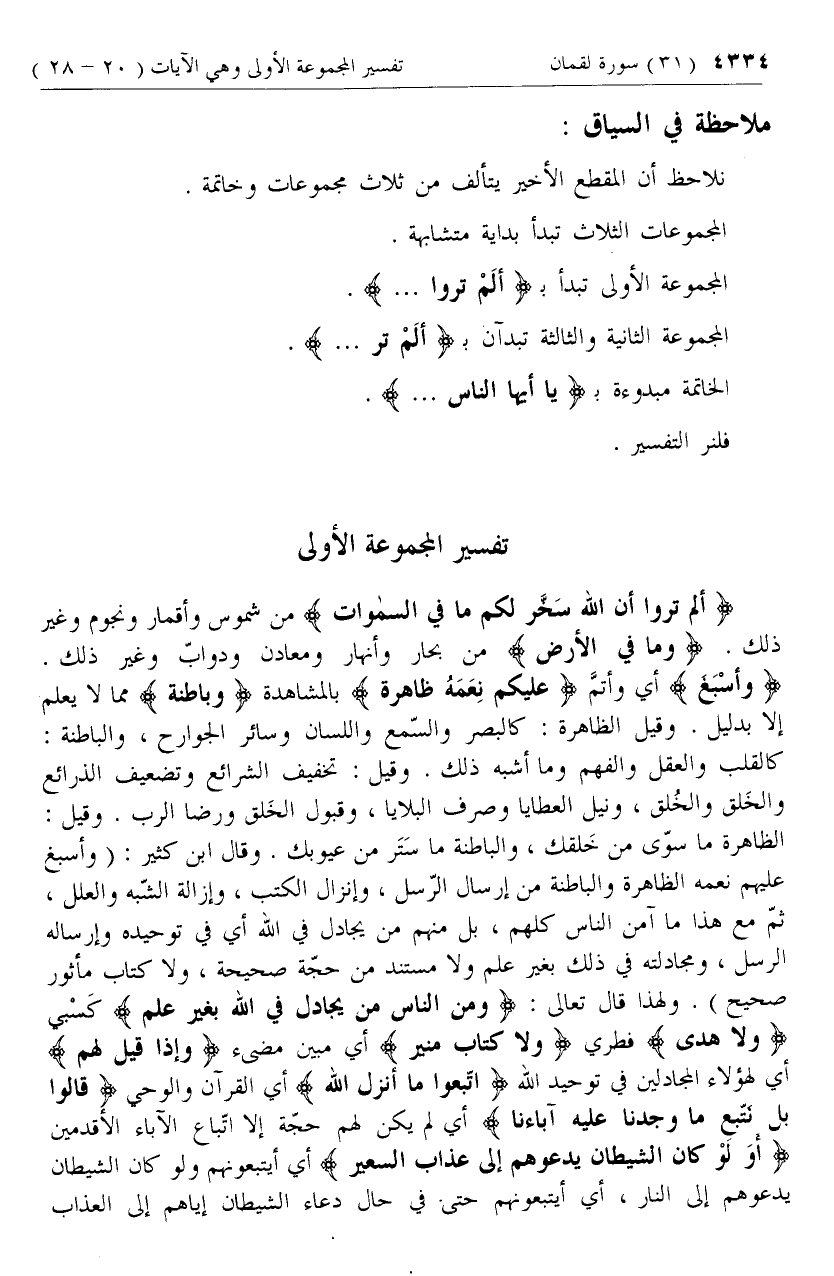 ٤٣٣٤ ( ٣١ ) سورة لقمان تفسير المجموعة الأولى وهي الآيات ( ٢٠ – ٢٨ )
ملاحظة في السياق :
نلاحظ أن المقطع الأخير يتألف من ثلاث مجموعات وخاتمة .
المجموعات الثلاث تبدأ بداية متشابهة .
المجموعة الأولى تبدأ بـ ﴿ ألَمْ تروا ... ﴾ .
المجموعة الثانية والثالثة تبدآن بـ ﴿ ألَمْ تر ... ﴾ .
الخاتمة مبدوءة بـ ﴿ يا أيها الناس ... ﴾ .
فلنر التفسير .
تفسير المجموعة الأولى
﴿ ألم تروا أن الله سَخَّر لكم ما في السمٰوات ﴾ من شموس وأقمار ونجوم وغير
ذلك . ﴿ وما في الأرض ﴾ من بحار وأنهار ومعادن ودوابّ وغير ذلك .
﴿ وأسْبَغَ ﴾ أي وأتمَّ ﴿ عليكم نِعَمَهُ ظاهرة ﴾ بالمشاهدة ﴿ وباطنة ﴾ مما لا يعلم
إلا بدليل . وقيل الظاهرة : كالبصر والسّمع واللسان وسائر الجوارح ، والباطنة :
كالقلب والعقل والفهم وما أشبه ذلك . وقيل : تخفيف الشرائع وتضعيف الذرائع
والخَلق والخُلق ، ونيل العطايا وصرف البلايا ، وقبول الخَلق ورضا الرب . وقيل :
الظاهرة ما سوّى من خَلقك ، والباطنة ما سَتَر من عيوبك . وقال ابن كثير : ( وأسبغ
عليهم نعمه الظاهرة والباطنة من إرسال الرّسل ، وإنزال الكتب ، وإزالة الشّبه والعلل ،
ثمّ مع هذا ما آمن الناس كلهم ، بل منهم من يجادل في الله أي في توحيده وإرساله
الرسل ، ومجادلته في ذلك بغير علم ولا مستند من حجّة صحيحة ، ولا كتاب مأثور
صحيح ) . ولهذا قال تعالى : ﴿ ومن الناس من يجادل في الله بغير علم ﴾ كَسْبي
﴿ ولا هدى ﴾ فطري ﴿ ولا كتاب منير ﴾ أي مبين مضىء ﴿ وإذا قيل لهم ﴾
أي لهؤلاء المجادلين في توحيد الله ﴿ اتّبعوا ما أنزل الله ﴾ أي القرآن والوحي ﴿ قالوا
بل نَتّبع ما وجدنا عليه آباءنا ﴾ أي لم يكن لهم حجّة إلا اتّباع الآباء الأقدمين
﴿ أَوَ لَوْ كان الشيطان يدعوهم إلى عذاب السعير ﴾ أي أيتبعونهم ولو كان الشيطان
يدعوهم إلى النار ، أي أيتبعونهم حتى في حال دعاء الشيطان إياهم إلى العذاب